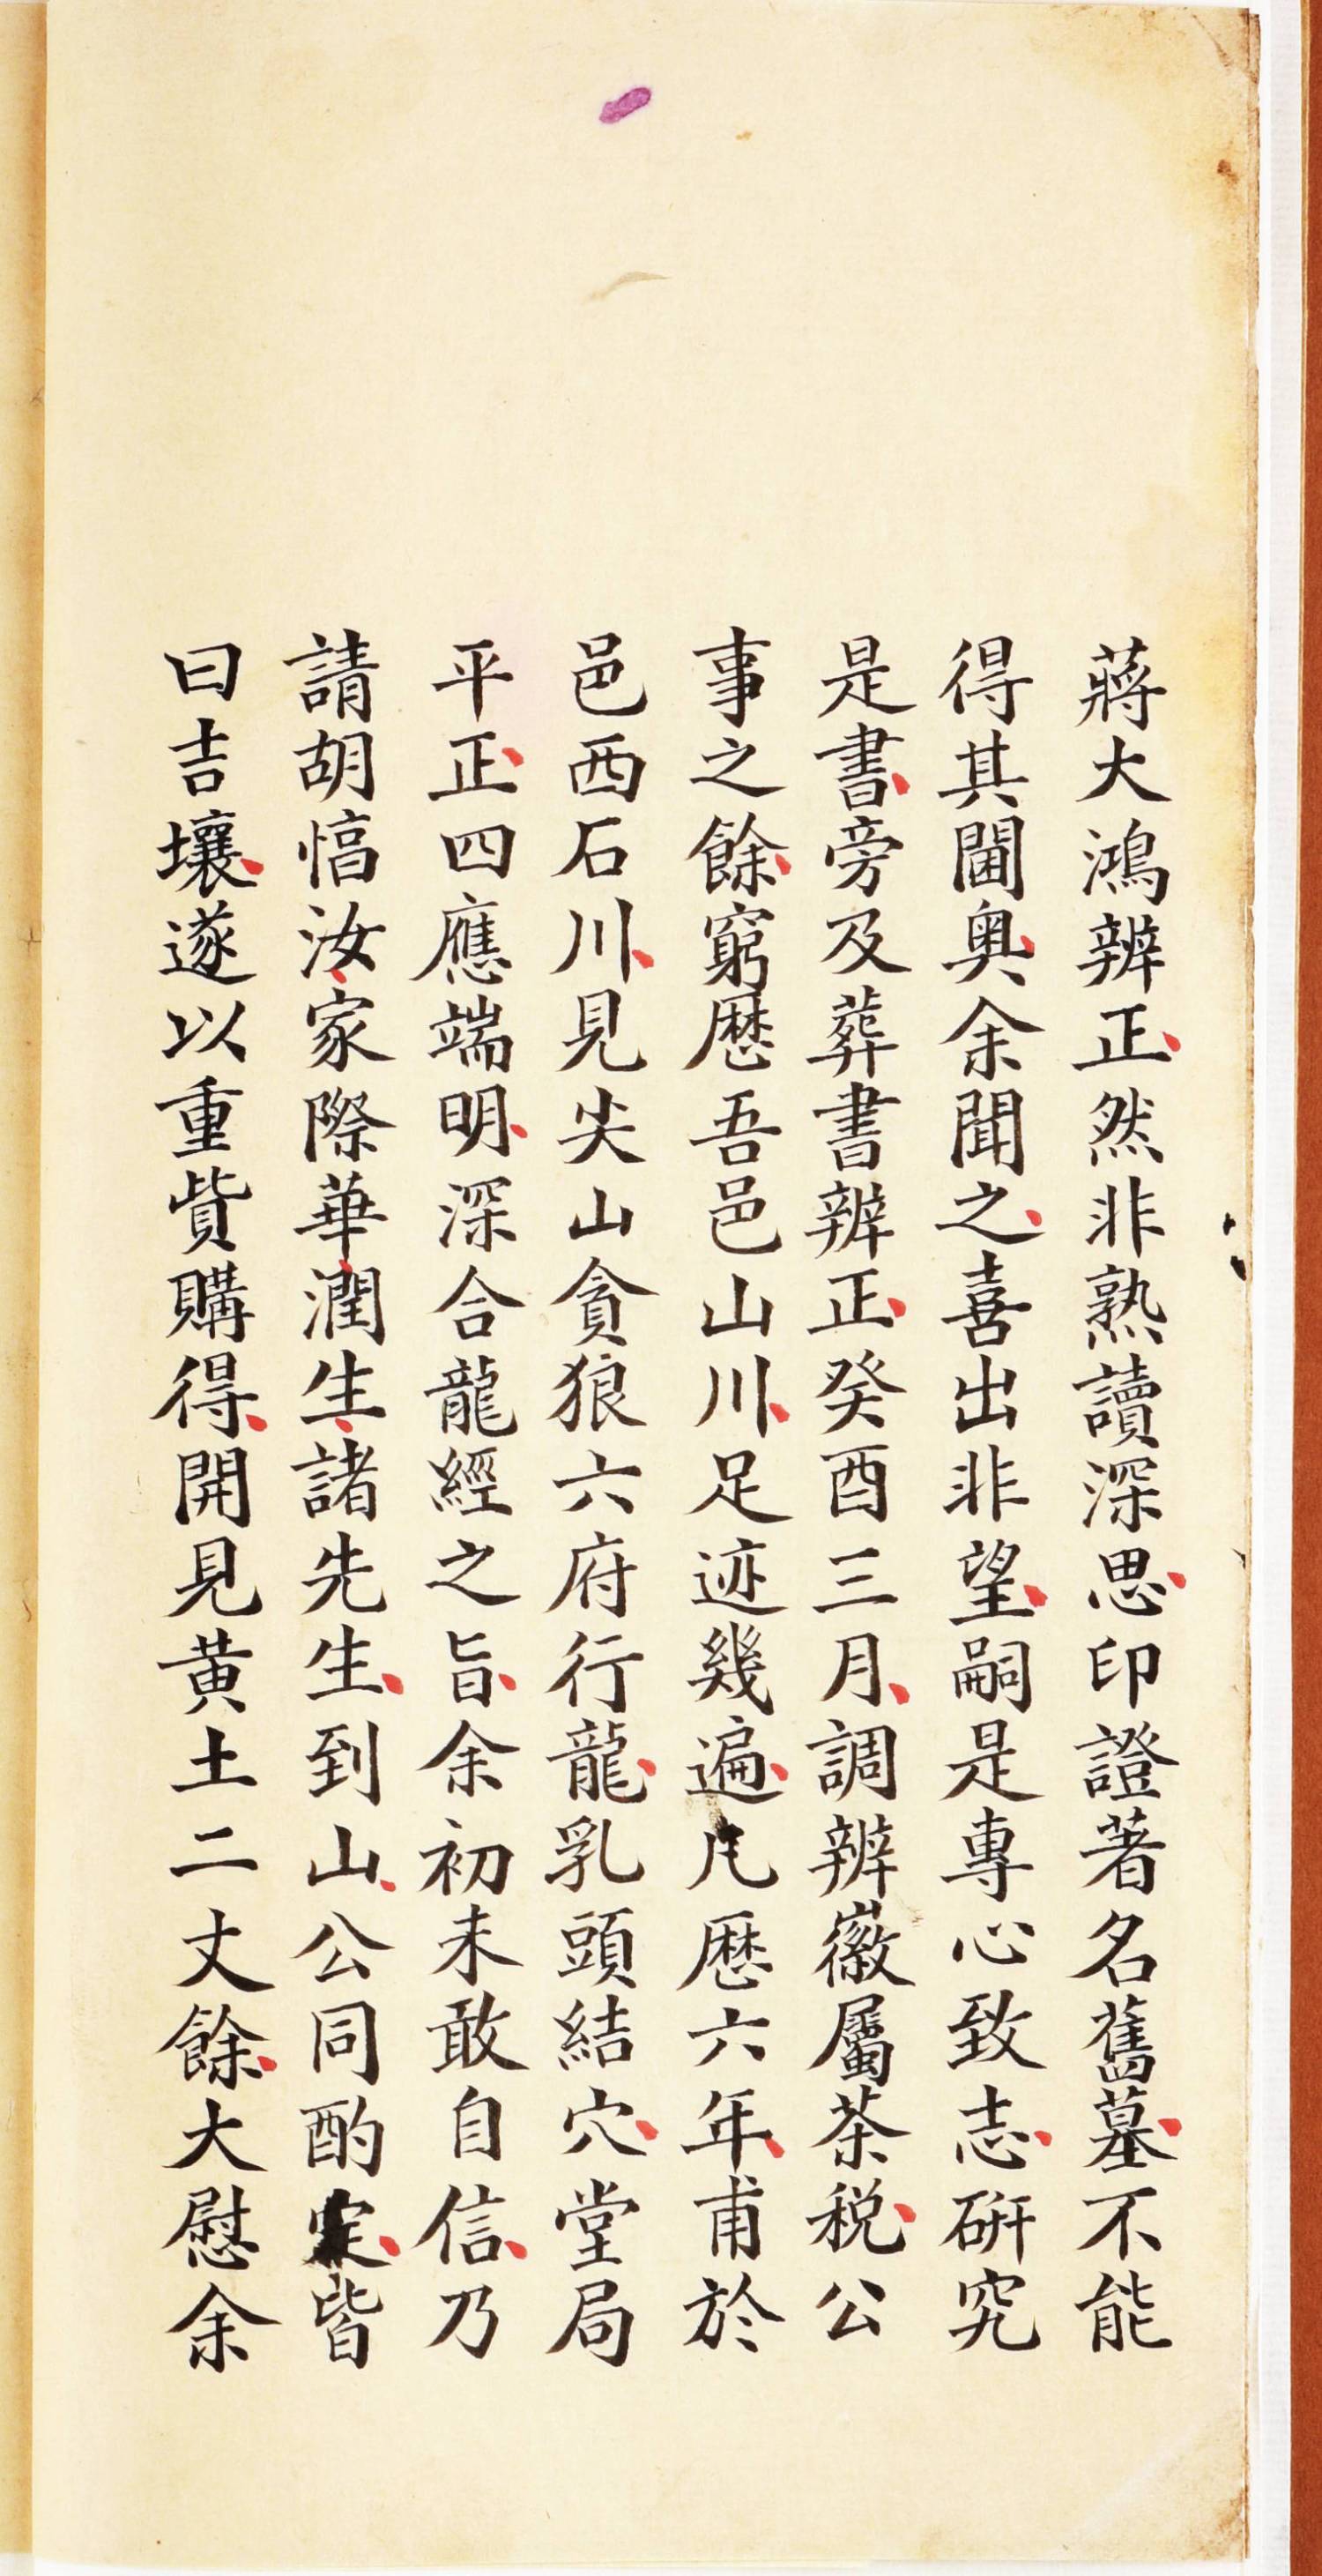 蔣大鴻辨正、然非熟讀深思、印證著名舊墓、不能
得其閫奧、余聞之、喜出非望、嗣是專心致志、硏究
是書、旁及葬書辨正、癸酉三月、調辦徽屬茶稅、公
事之餘、窮歷吾邑山川、足迹幾遍、凡歷六年、甫於
邑西石川、見尖山貪狼六府行龍、乳頭結穴、堂局
平正、四應端明、深合龍經之旨、余初未敢自信、乃
請胡愭汝、家際華、潤生、諸先生、到山、公同酌定、皆
曰吉壤、遂以重貲購得、開見黃土二丈餘、大慰余